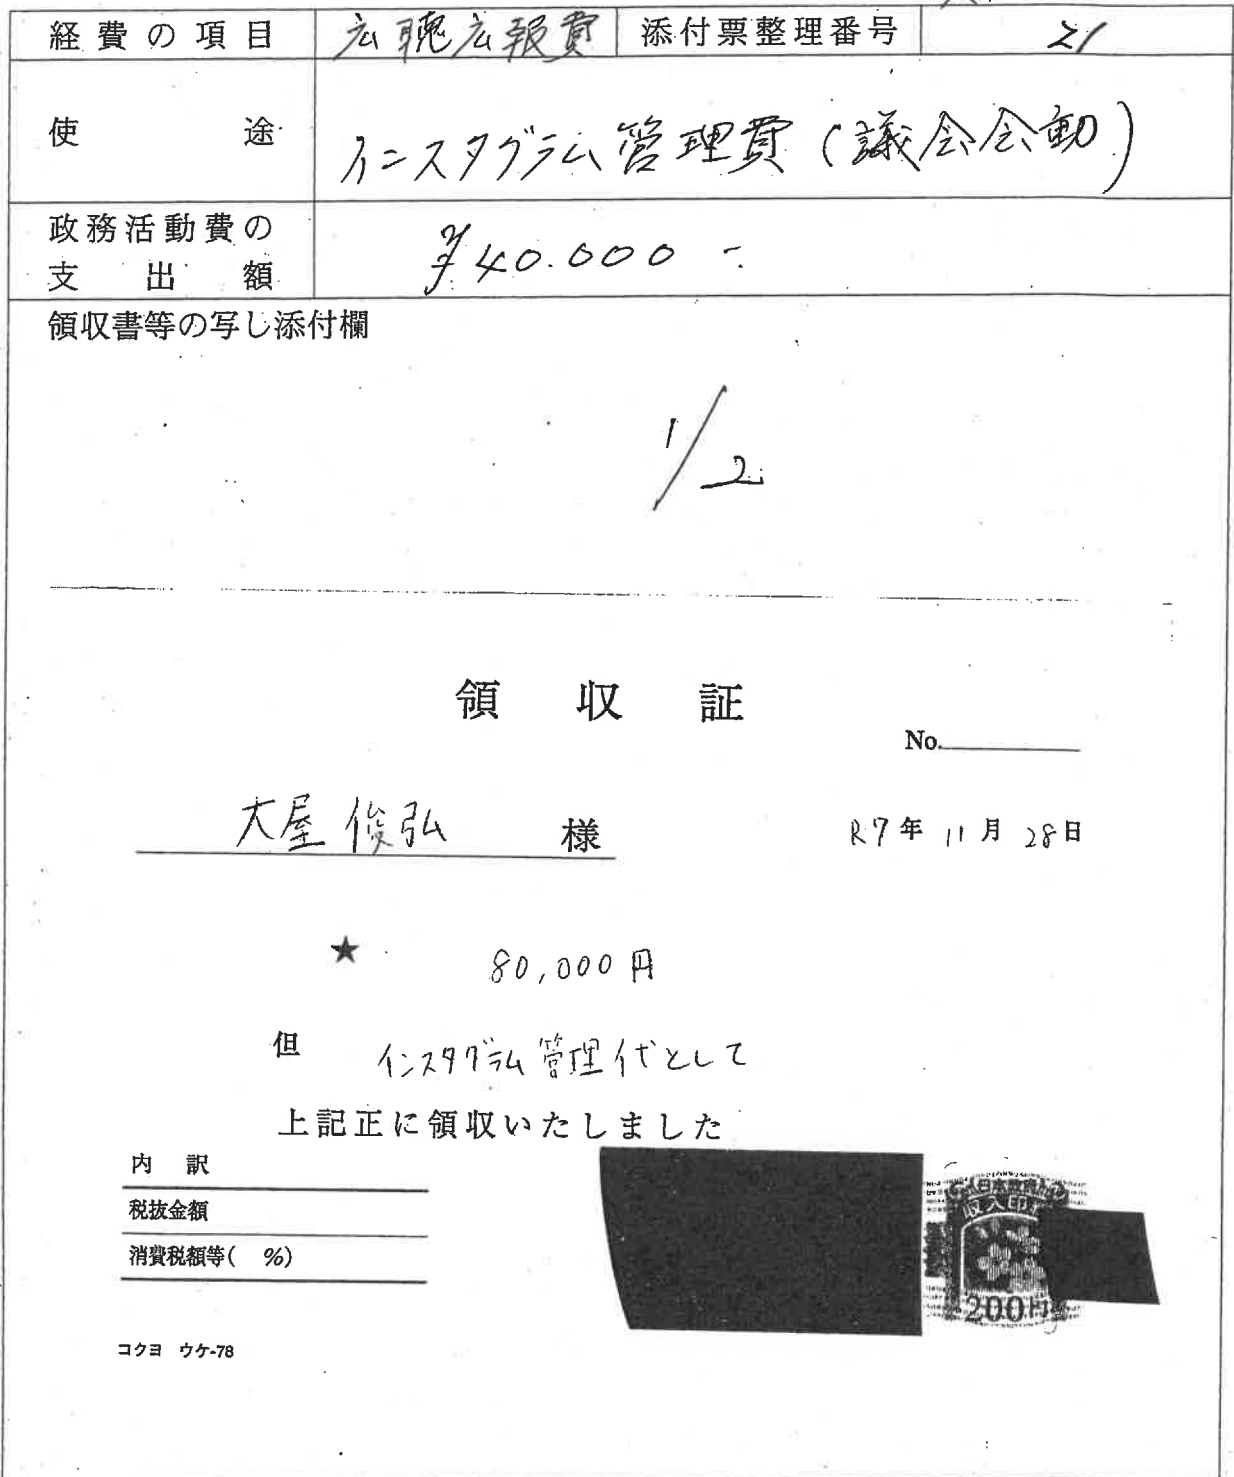 経費の項目 広聴広報費 添付票整理番号 21
使途 インスタグラム管理費(議会会動)
政務活動費の
支出額 ¥40.000-
領収書等の写し添付欄
1/2
領収証
No.
大屋俊弘 様 R7年11月28日
★ 80,000円
但 インスタグラム管理代として
上記正に領収いたしました
内訳
税抜金額
消費税額等( %)
日本政府
収入印
200円
コクヨ ウケ-78